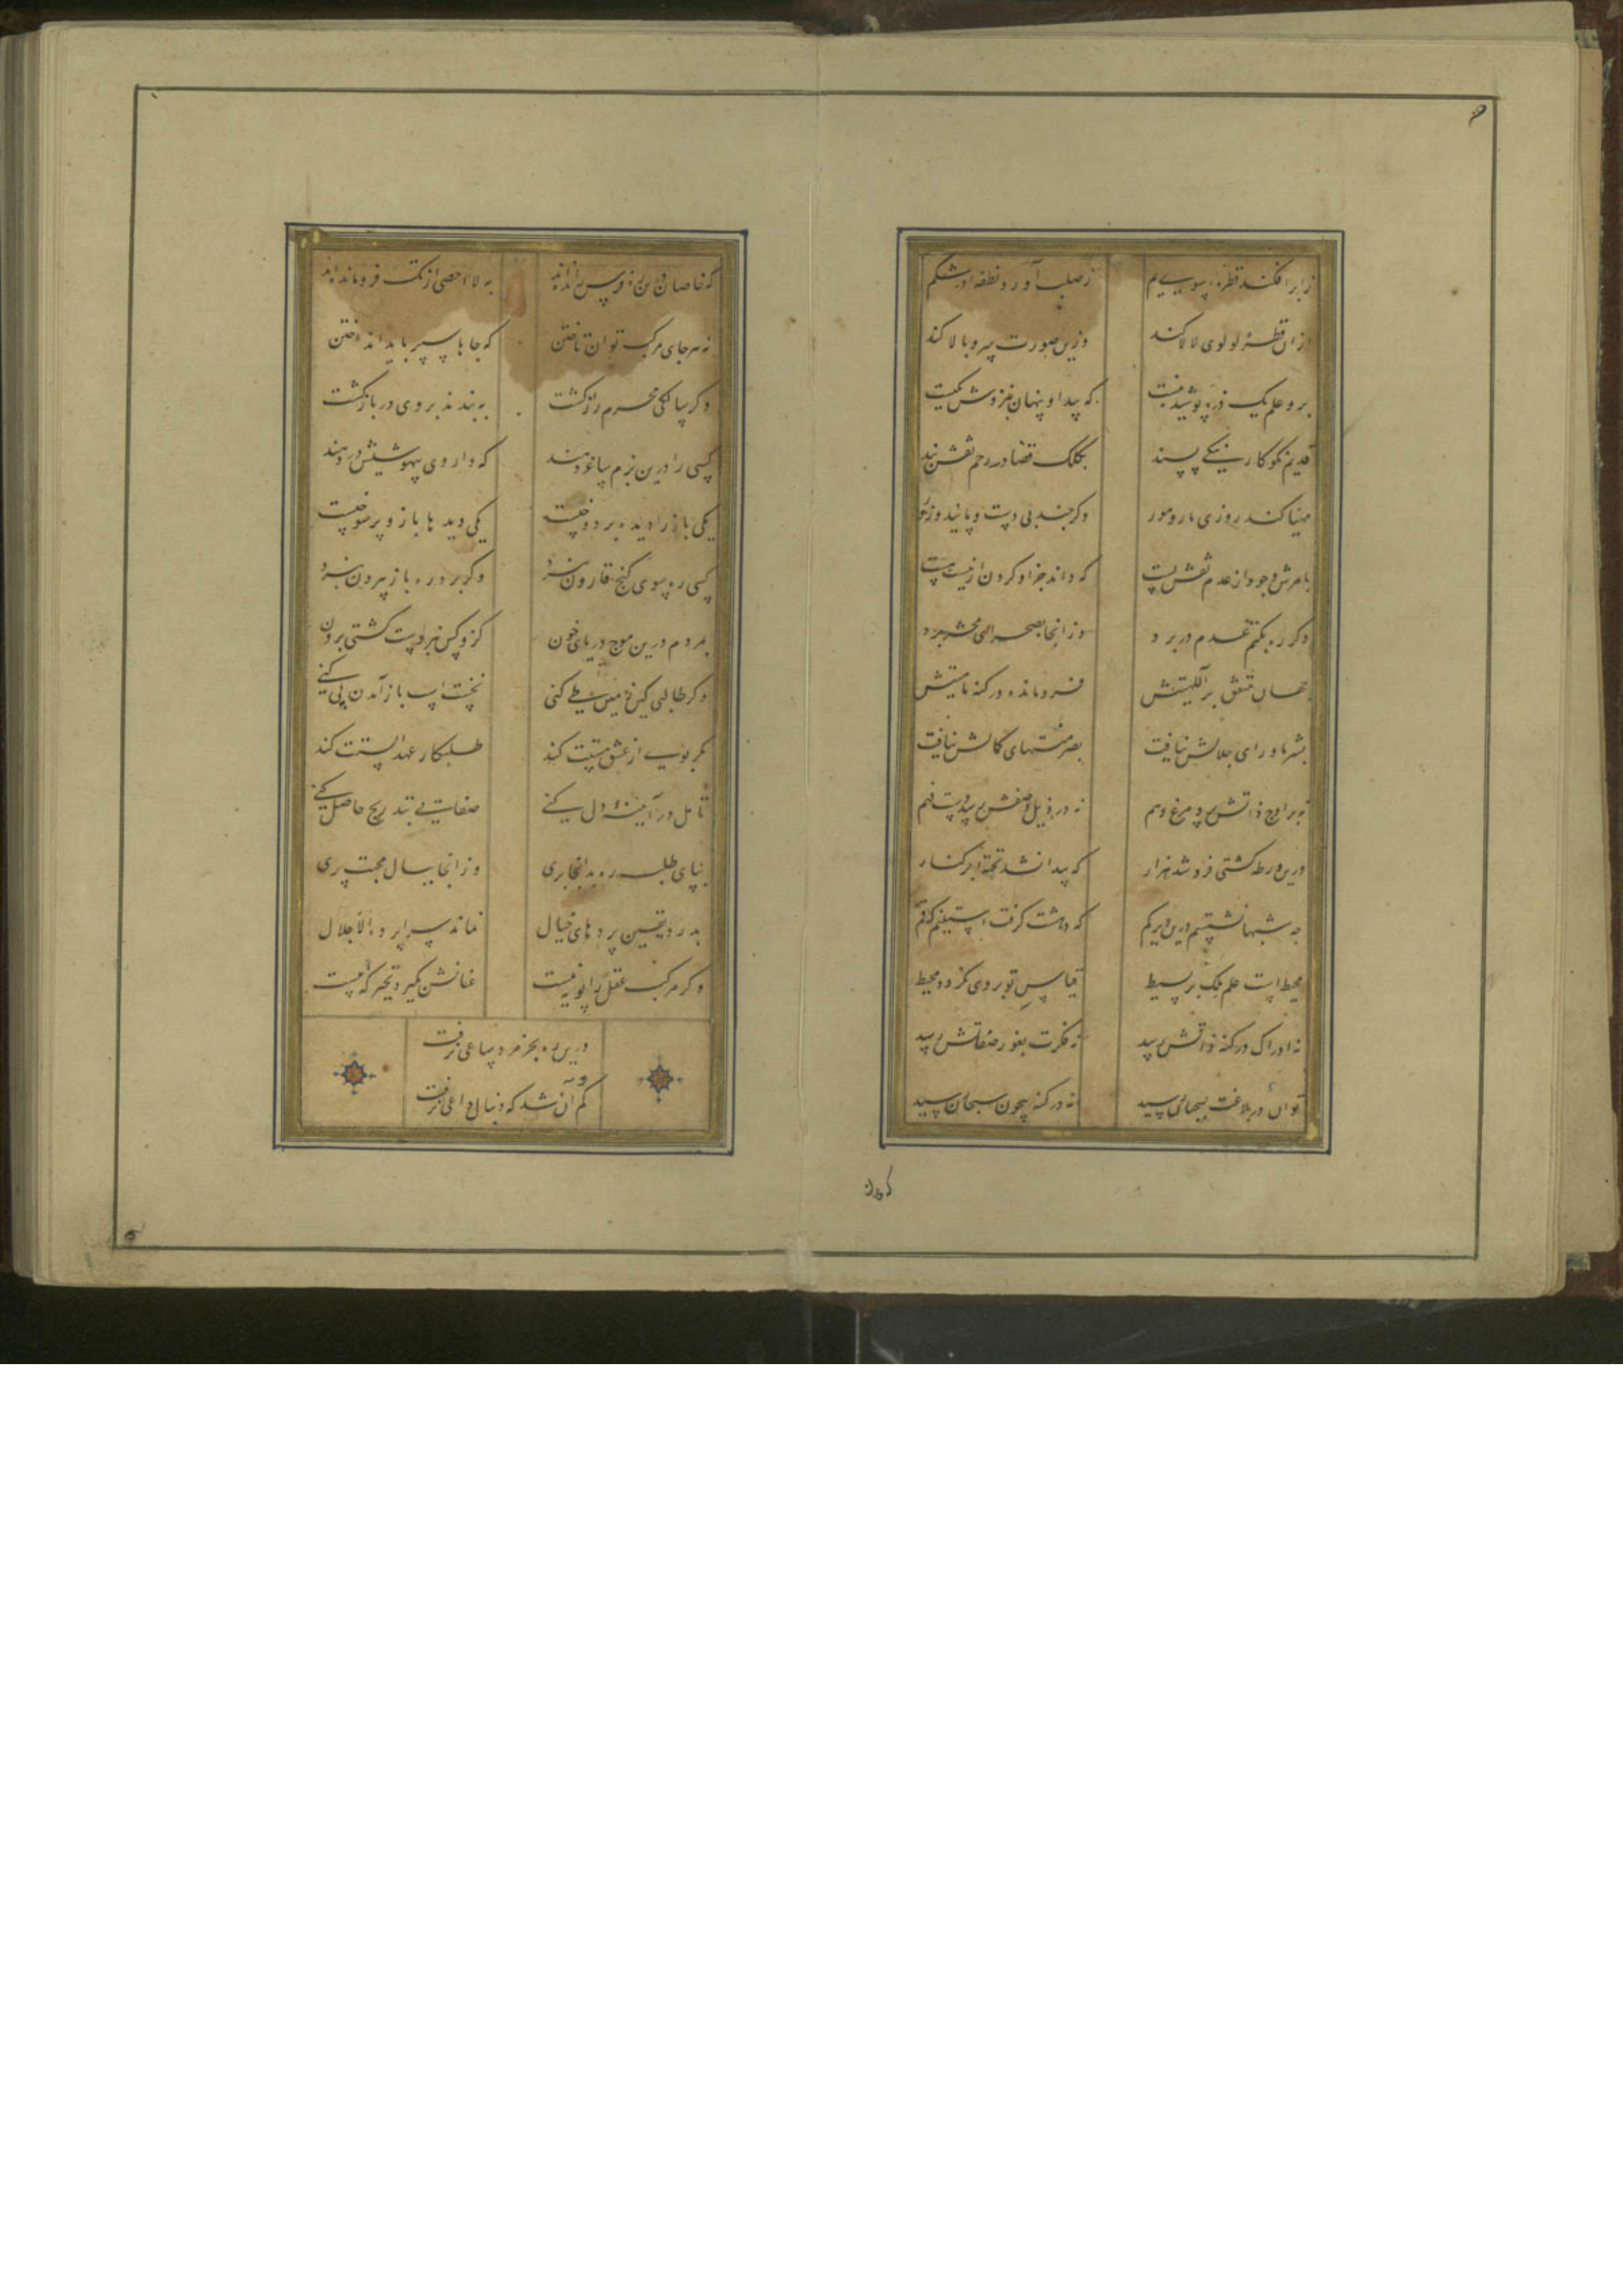 ز ابر افکند قطره سوی یم
ز صلب آورد نطفه در شکم
ازان قطره لولوی لالا کند
وزین صورت سرو بالا کند
برو علم یک ذره پوشیده نیست
که پیدا و پنهان بنزدش یکیست
قدیم نکوکار نیکی پسند
بکلک قضا در رحم نقش بند
مهیا کند روزی مار و مور
وگر چند بی دست و پایند و زور
بامرش وجود از عدم نقش بست
که داند جز او کردن از نیست هست
دگر ره بکتم عدم در برد
وز آنجا بصحرای محشر برد
جهان متفق بر الهیتش
فرومانده در کنه ماهیتش
بشر ماورای جلالش نیافت
بصر منتهای کمالش نیافت
نه بر اوج ذاتش پرد مرغ وهم
نه در ذیل وصفش رسد دست فهم
درین ورطه کشتی فرو شد هزار
که پیدا نشد تخته بر کنار
چه شبها نشستم درین دیر گم
که دهشت گرفت آستینم که قم
محیط است علم ملک بر بسیط
قیاس تو بروی نگردد محیط
نه ادراک در کنه ذاتش رسد
نه فکرت بغور صفاتش رسد
توان در بلاغت بسحبان رسید
نه در کنه بیچون سبحان رسید
که خاصان درین ره فرس رانده‌اند
به لا احصی از تک فرومانده‌اند
نه هر جای مرکب توان تاختن
که جاها سپر باید انداختن
وگر سالکی محرم راز گشت
ببندند بر وی در بازگشت
کسی را درین بزم ساغر دهند
که داروی بیهوشیش در دهند
یکی باز را دیده بر دوختست
یکی دیدها باز و پر سوختست
کسی ره سوی گنج قارون نبرد
وگر برد ره باز بیرون نبرد
بمردم درین موج دریای خون
کزو کس نبردست کشتی برون
وگر طالبی کین زمین طی کنی
نخست اسب باز آمدن پی کنی
مگر بویی از عشق مستت کند
طلبکار عهد الستت کند
تأمل در آیینهٔ دل کنی
صفایی بتدریج حاصل کنی
بپای طلب ره بدانجا بری
وز آنجا ببال محبت پری
بدرد یقین پردهای خیال
نماند سراپرده الا جلال
وگر مرکب عقل را پویه نیست
عنانش بگیرد تحیر که بیست
درین بحر جز مرد ساعی نرفت
گم آن شد که دنبال داعی نرفت